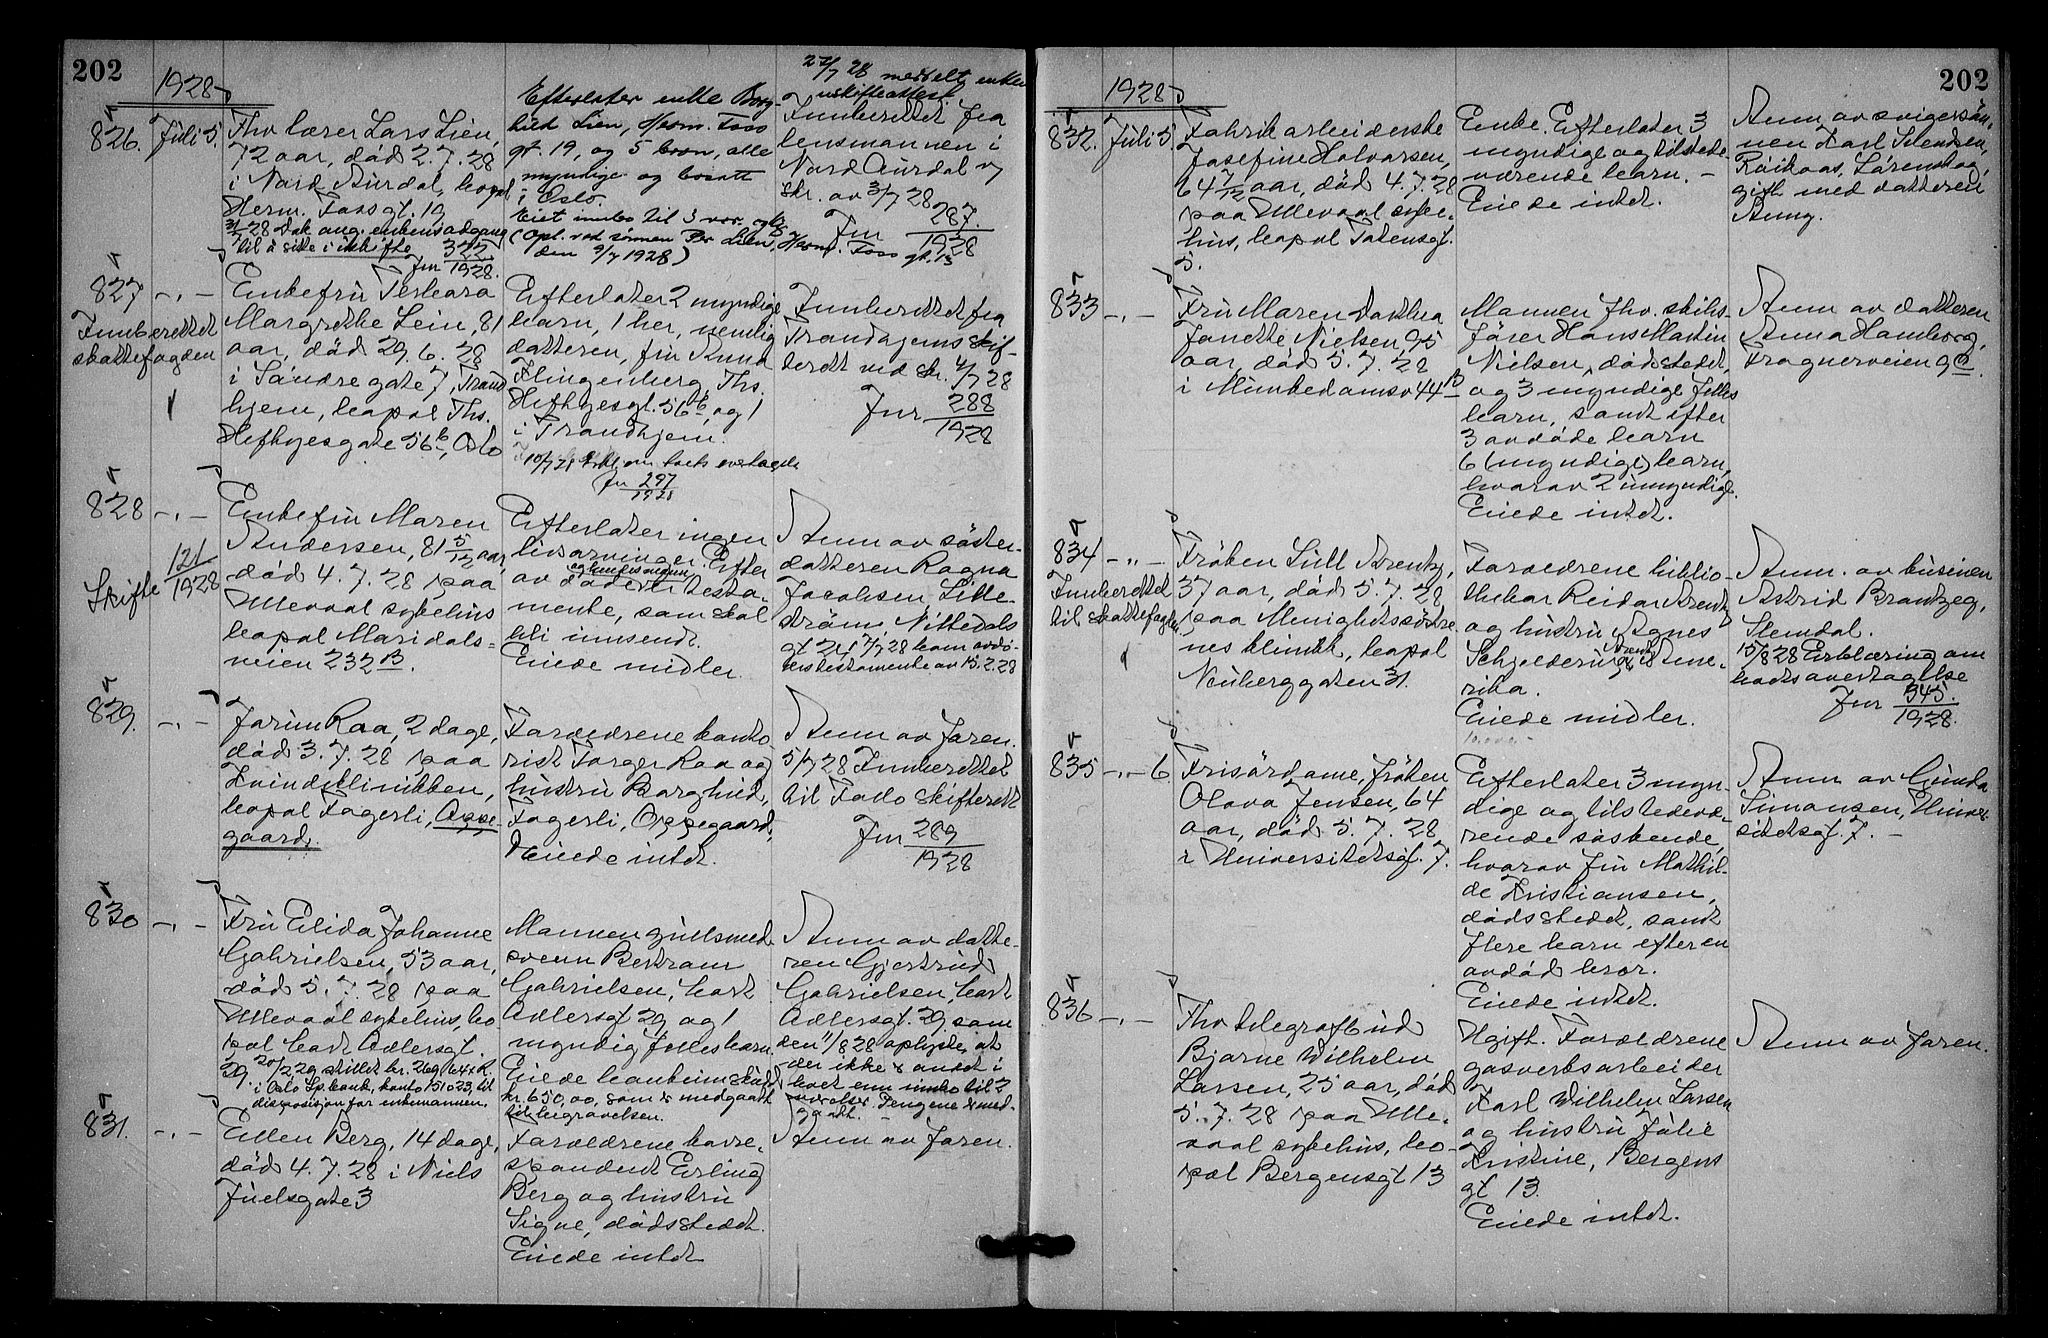 202
1928
826. Juli 5.
Fhv lærer Lars Lien,
72 aar, död 2.7.28
i Nord Aurdal, bopæl
Herm. Fossgt. 19
28 Dok ang. enkens adgang
til å sitte i
Jnr 322/1928.
Efterlater enke Borg-
hild Lien, Herm. Foss
gt. 19, og 5 barn, alle
myndige og bosatt
i Oslo.
Eiet innbo til
(Opl. ved sönnen Per Lien, Herm. Foss gt. 13
den 9/7 1928)
27/7 28 meddelt enken
uskifteattest
Innberettet fra
lensmannen i
Nord Aurdal v
skr. av 3/7 28
Jnr 287/1928
827 -"-
Innberettet
skattefogden
Enkefru
Margrethe Lein, 81
aar, död 29.6.28
i Söndregate 7, Trond
hjem, bopæl Ths.
Heftyesgate 56b, Oslo
Efterlater 2 myndige
barn, 1 her, nemlig
datteren, fru Knud
Klingenberg, Ths.
Heftyesgt. 56b, og 1
i Trondhjem.
10/7 28 Erkl om boets overtagelse
Jnr 297/1928
Innberettet fra
Trondhjems skif-
terett ved skr. 4/7 28
Jnr 288/1928
828 -"-
Skifte 121/1928
Enkefru Maren
Andersen, 81 5/12 aar,
död 4.7.28 paa
Ullevaal sykehus
bopæl Maridals-
veien 232B
Efterlater ingen
livsarvinger. Efter
av döde er testa-
mente, som skal
bli innsendt.
Eiede midler.
Anm av söster-
datteren Ragna
Jacobsen Lille-
ström, Nittedals
gt 24. 7/7 28 kom avdö-
des testamente av 15.2.28
829. -"-
Jorun Raa, 2 dage,
död 3.7.28 paa
Kvindeklinikken,
bopæl Fagerli, Oppe-
gaard.
Forældrene konto
rist Torger Raa og
hustru Borghild,
Fagerli, Oppegaard,
Eiede intet.
Anm av faren.
5/7 28 Innberettet
til Follo skifterett
Jnr 289/1928
830 -"-
Fru Elida Johanne
Gabrielsen, 53 aar,
död 5.7.28 paa
Ullevaal sykehus, bo
pæl Cort Adlersgt.
29. 20/2 29 skiftet kr. 269,64
i Oslo Sp.bank, konto 151023, til
disposisjon for enkemannen.
Mannen gullsmed
svenn Bertram
Gabrielsen, Cort
Adlersgt 29, og 1
myndig fellesbarn.
Eiede
kr. 650,00, som er medgaatt
til begravelsen.
Anm av datte-
ren Gjertrud
Gabrielsen, Cort
Adlersgt. 29, som
den 1/8 28 oplyste, at
der ikke er andet i
boet enn innbo til 2
værelser. Pengene er med-
gaatt.
831. -"-
Ellen Berg, 14 dage,
död 4.7.28 i Niels
Juelsgate 3
Forældrene korre-
spondent Erling
Berg og hustru
Signe, dödsstedet.
Eiede intet
Anm av faren.
202
1928
832. Juli 5.
Fabrikarbeiderske
Josefine Halvorsen,
64 7/12 aar, död 4.7.28
paa Ullevaal syke-
hus, bopæl Totensgt.
5.
Enke. Efterlater 3
myndige og tilstede-
værende barn. -
Eiede intet.
Anm av svigersön-
nen Karl
Lörenskog,
gift med datteren
Anny.
833 -"-
Fru Maren Dorthea
Janette Nielsen 95
aar, död 5.7.28
i Munkedamsv 44B
Mannen fhv. skibs-
förer Hans Martin
Nielsen, dödsstedet,
og 3 myndige felles
barn, samt efter
3 avdöde barn
6 (myndige) barn,
hvorav 2 umyndige.
Eiede intet.
Anm av datteren
Anna Hamborg,
Frognerveien 9C.
834 -"-
Innberettet
til skattefogden
Fröken Lull Arentz,
37 aar, död 5.7.28
paa Menighetssöstre
nes klinikk, bopæl
Neuberggaten 31.
Forældrene biblio-
thekar Reidar Arentz
og hustru Agnes
Schjoldorup Arentz, Ame-
rika.
Eiede midler.
Anm. av kusinen
Astrid Brantzeg,
Slemdal.
15/8 28 Erklæring om
boets overtagelse
Jnr 345/1928.
835 -"- 6.
Frisördame, fröken
Olava Jensen, 64
aar, död 5.7.28,
i Universitetsgt. 7.
Efterlater 3 myn-
dige og tilstedevæ-
rende söskende,
hvorav fru Mathil-
de Kristiansen,
dödsstedet, samt
flere barn efter en
avdöd bror.
Eiede intet.
Anm av Gunda
Simonsen, Univer-
sitetsgt. 7. -
836 -"-
Fhv telegrafbud
Bjarne Wilhelm
Larsen, 25 aar, död
5.7.28 paa Ulle-
vaal sykehus, bo-
pæl Bergensgt 13
Ugift. Forældrene
gasverksarbeider
Karl Wilhelm Larsen
og hustru Julie
Kristine, Bergens
gt 13.
Eiede intet.
Anm av faren.